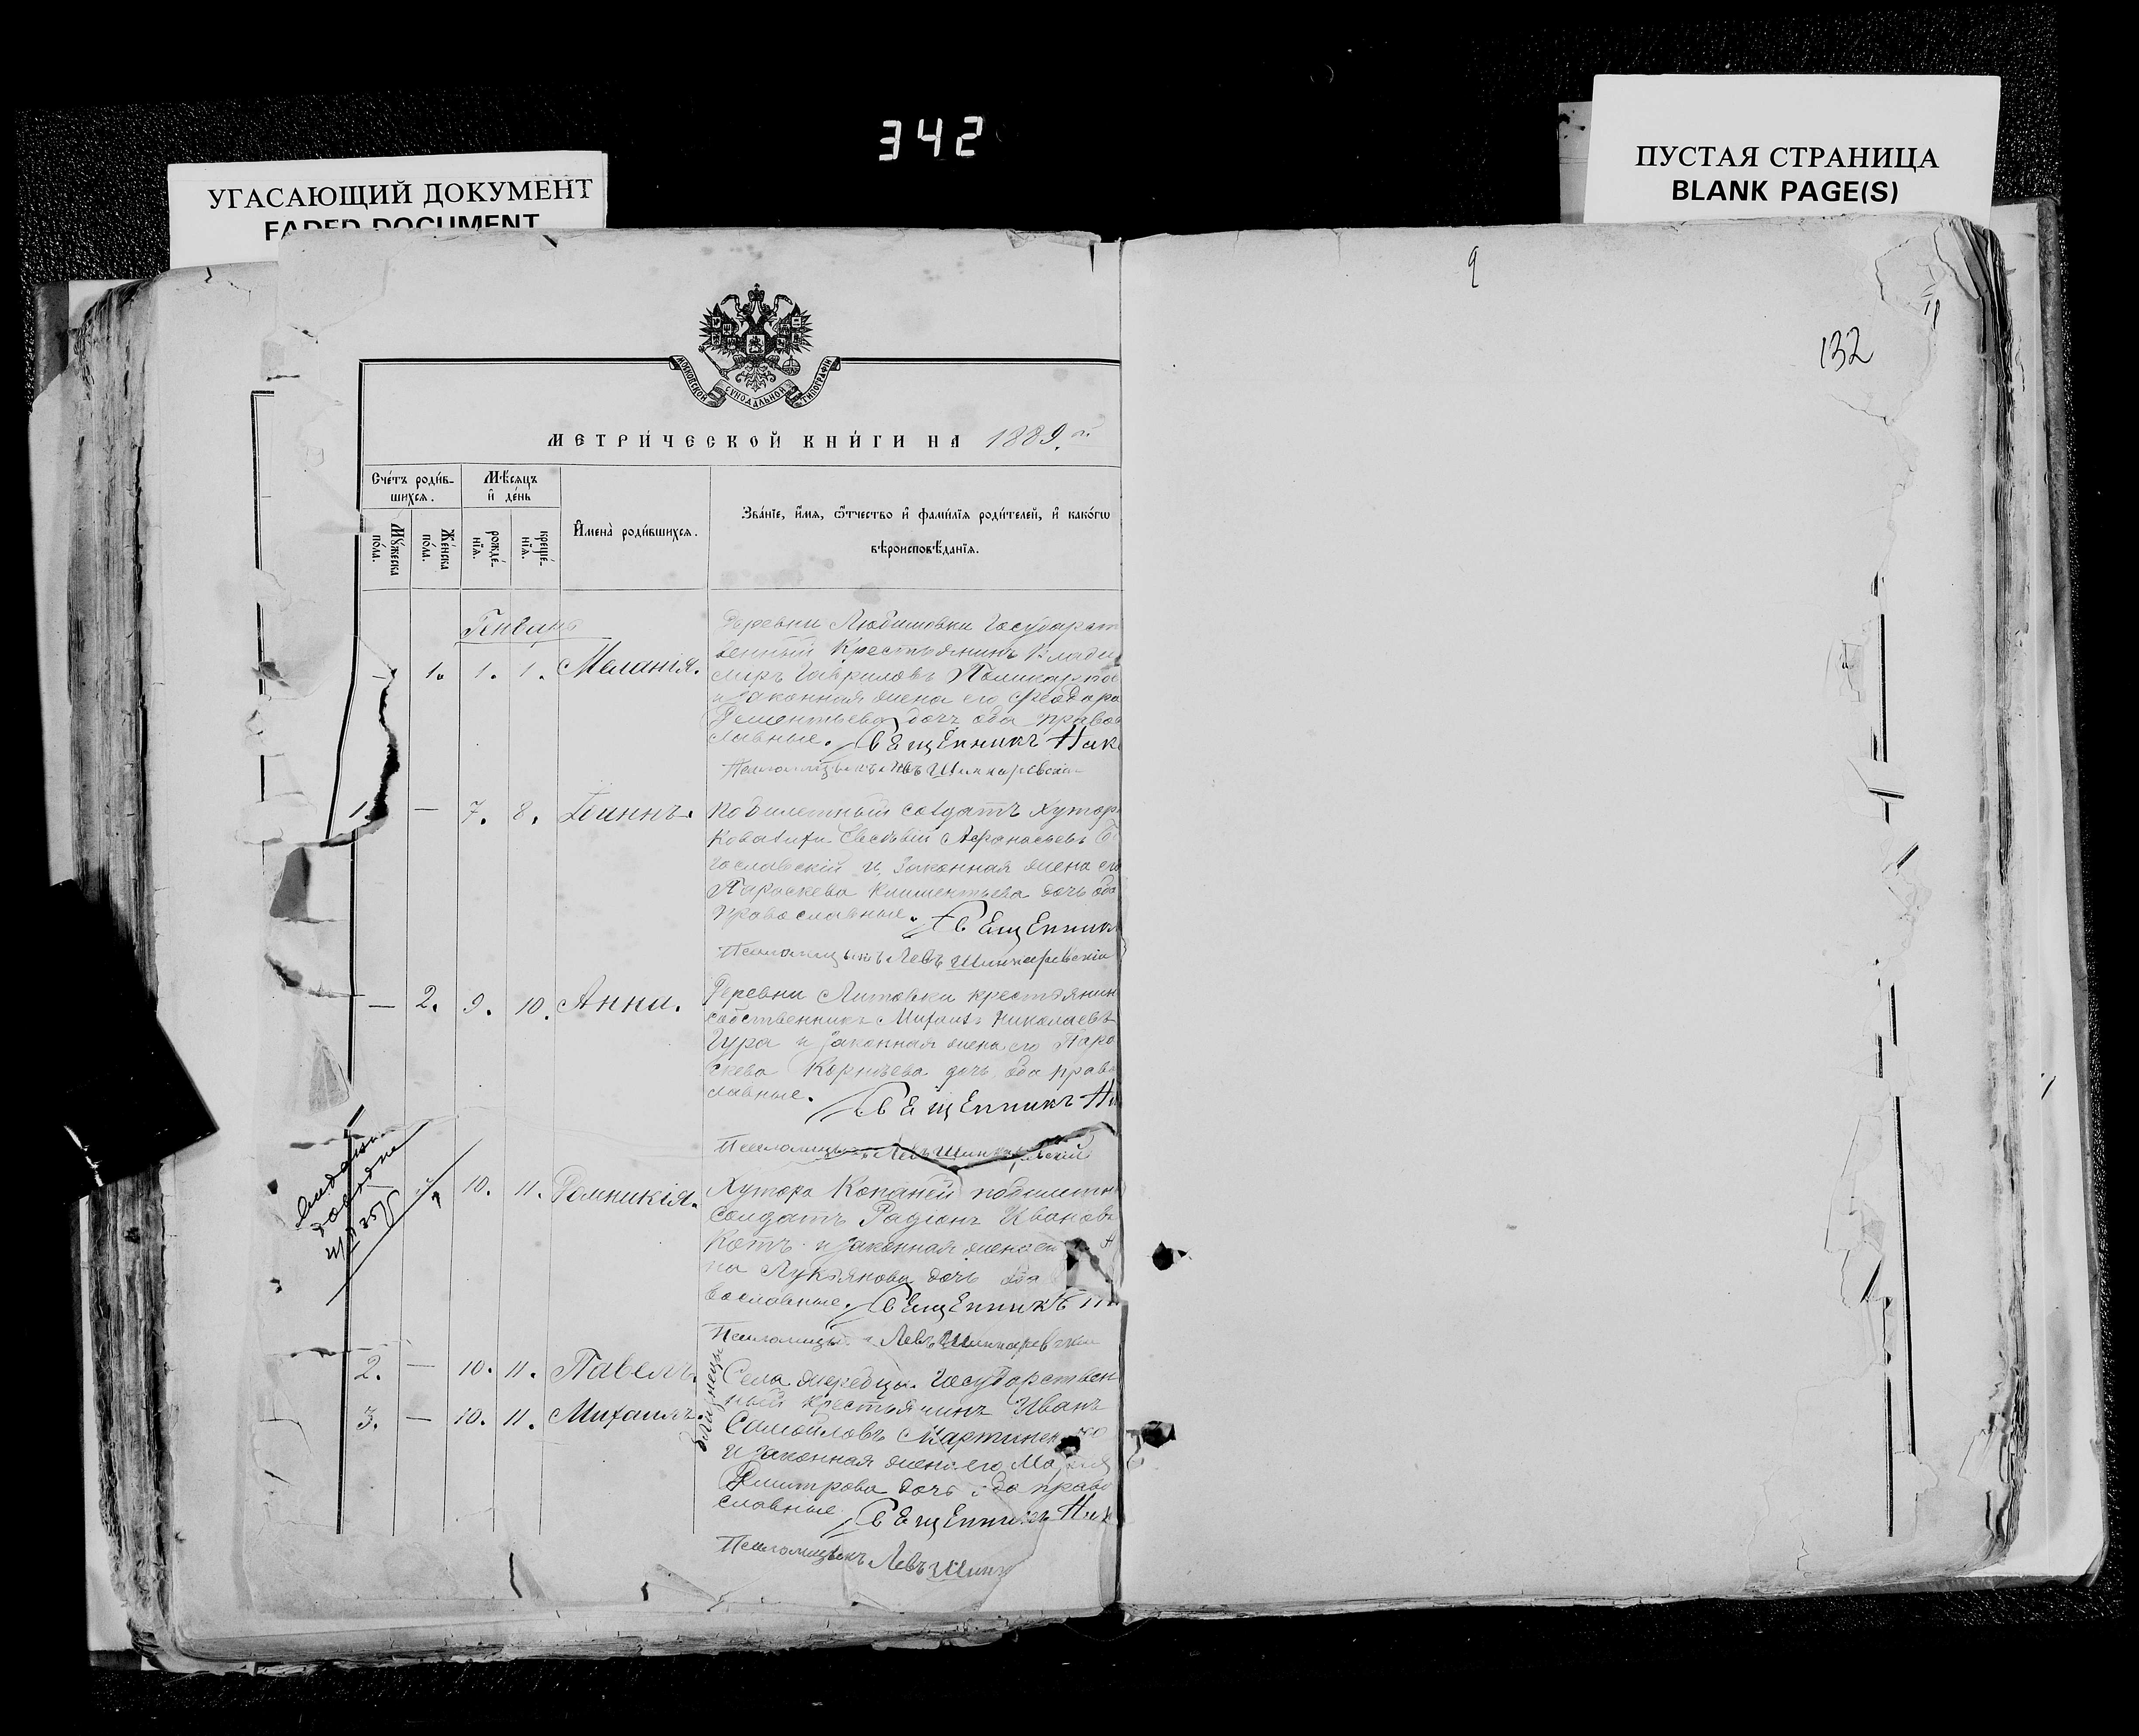 342
УГАСАЮЩИЙ ДОКУМЕНТ
FADED DOCUMENT
ПУСТАЯ СТРАНИЦА
BLANK PAGE(S)
9
132
МОСКОВСКОЙ СУНОДАЛЬНОЙ ТИПОГРАФІИ
МЕТРИ́ЧЕСКОЙ КНИ́ГИ НА 1889.й
Сче́тъ роди́в-
шихся.
Мѣ́сяцъ
и҆ де́нь
Мꙋ́жеска
по́ла.
Же́нска
по́ла.
рожде́-
нїѧ.
креще́-
нїѧ.
И҆мена̀ роди́вшихсѧ.
Зва́нїе, и҆́мѧ, ѻ҆́тчество и҆ фами́лїѧ роди́телей, и҆ како́гѡ
вѣроисповѣ́данїѧ.
Генварь
Деревни Любимовки Государст
венный Крестьянинъ Влади
— 1. 1. 1. Меланія.
миръ Гавриловъ Поликарпов
и законная жена его Феодора
Дементьева дочь оба право
славные. Священникъ Ник
Псаломщикъ Левъ Шинкаревскій
1. — 7. 8. Іоаннъ. по билетный солдатъ Хутора
Евсѣвій Афанасьевъ
гославскій и законная жена его
Параскева Климентьева дочь оба
православные. Священник
Псаломщикъ Левъ Шинкаревскій
— 2. 9. 10. Анна. Деревни Литовки крестьянин
собственникъ Михаилъ Николаевъ
Гура и законная жена его Пара
скева Корнѣева дочь оба право
славные. Священникъ Ни
Псаломщикъ Левъ Шинкаревскій
10. 11. Домникія. Хутора Копаней побилетн
солдатъ Радіонъ Ивановъ
Котъ и законная жена ег А
на Лукьянова дочь оба
вославные. Священникъ
Псаломщи Левъ Шинкаревскій
близнецы
2. — 10. 11. Павелъ. Села Жеребца Государствен
ный крестьянинъ Иванъ
3. — 10. 11. Михаилъ. Самойловъ Мартиненко
и законная жена его Марія
Дмитрова дочь оба право
славные Священникъ Ник
Псаломщикъ Левъ Шинк